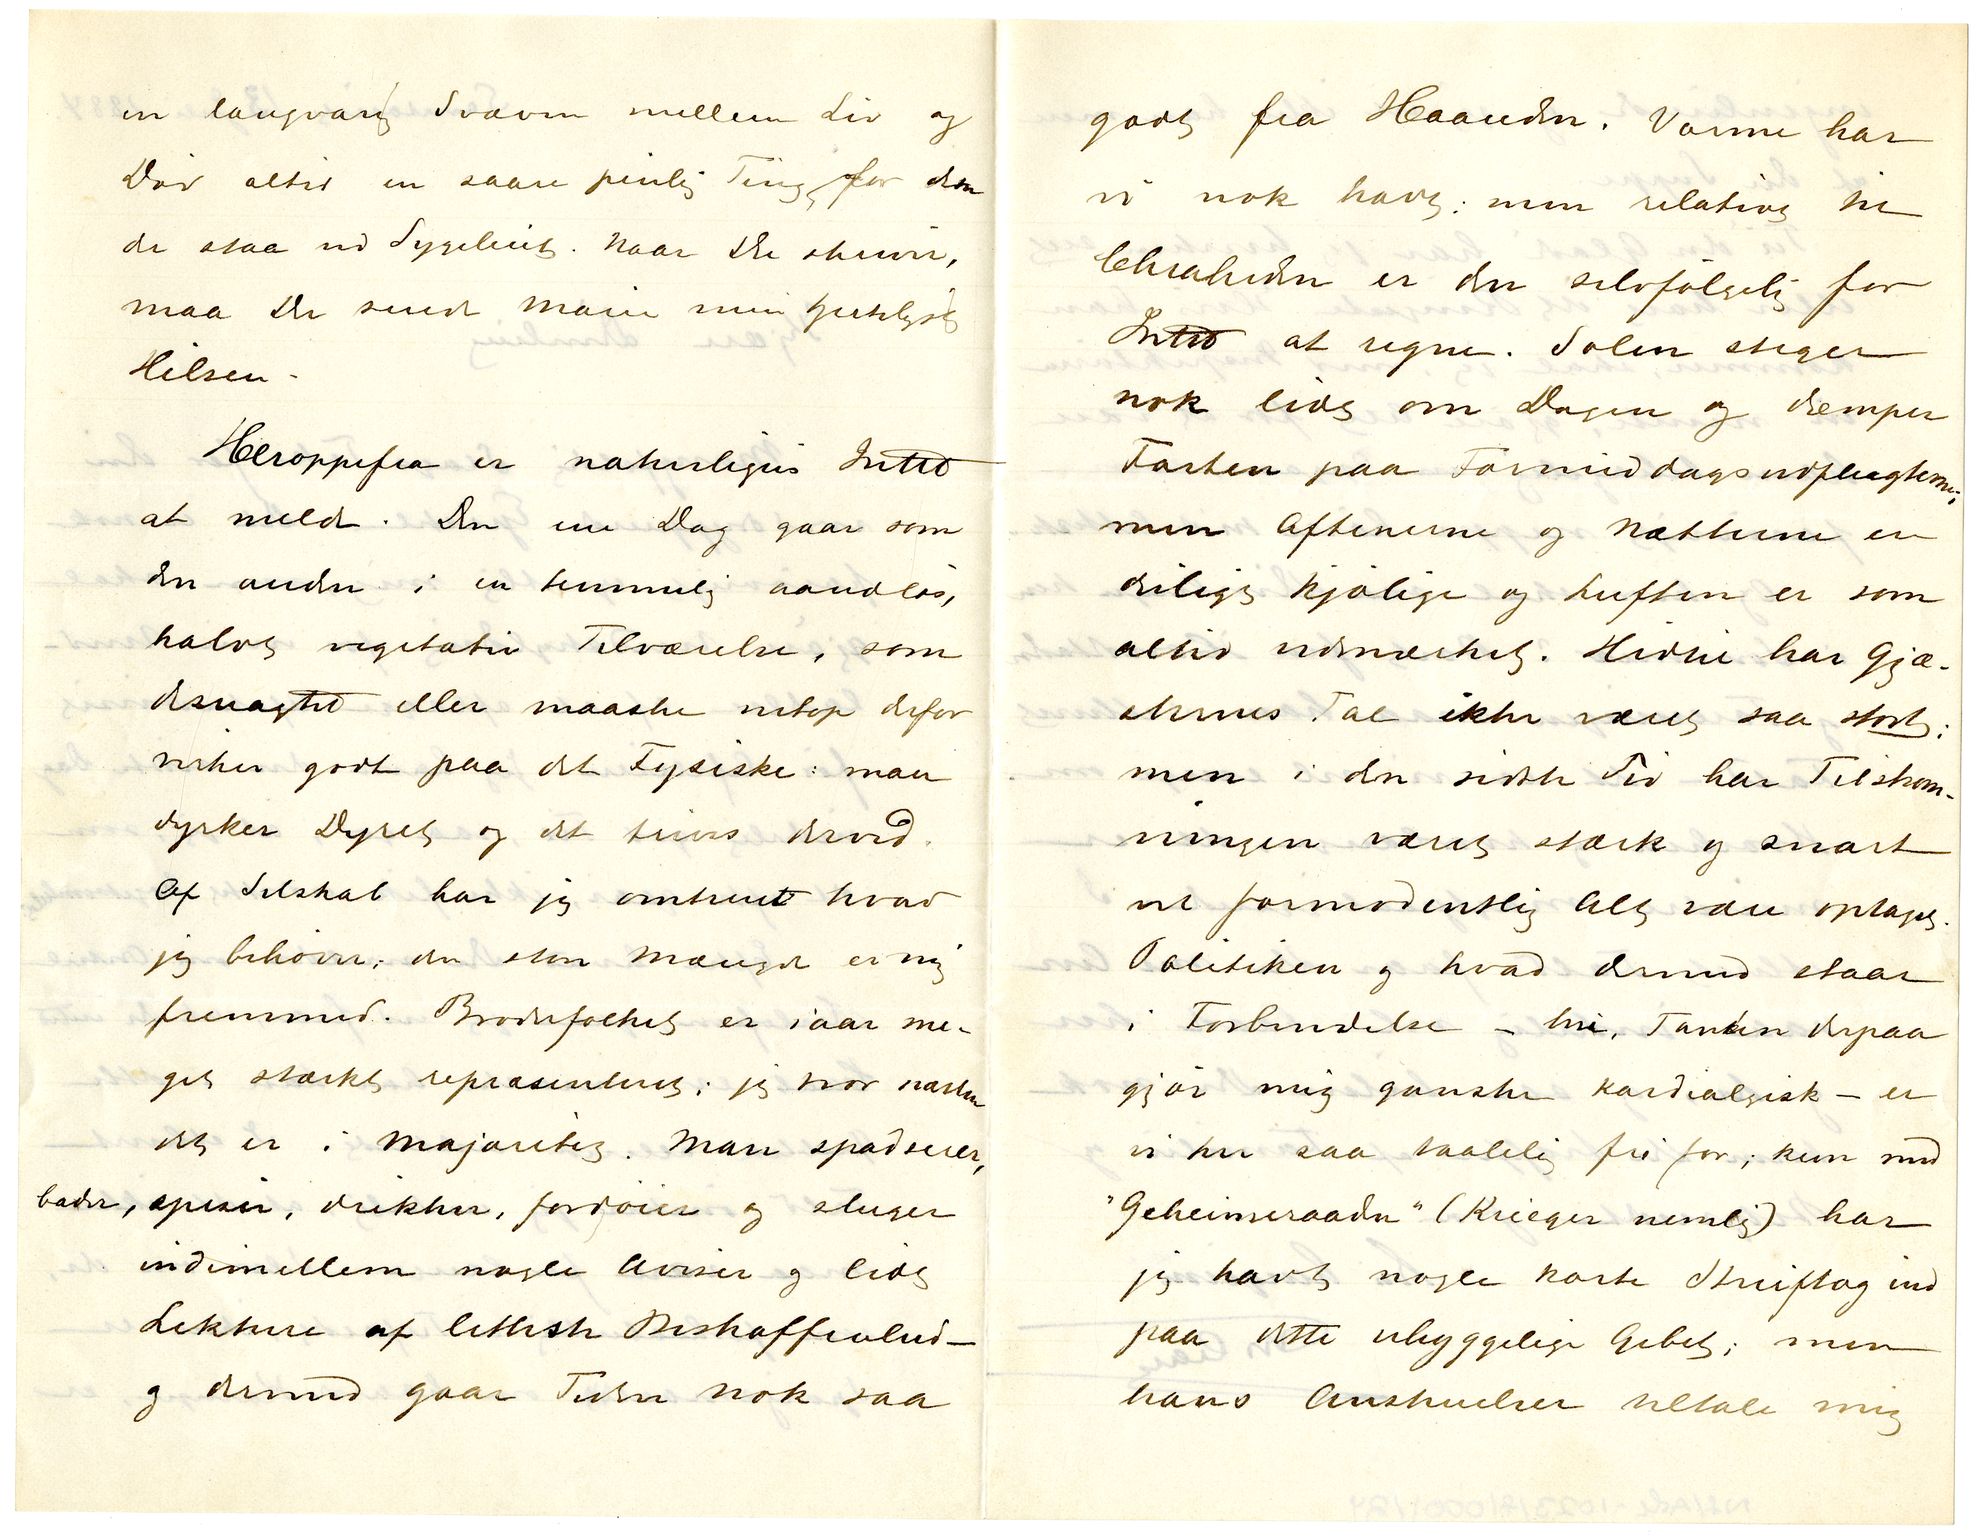 en langvarig Svæven mellem Liv og
Død altid en saare pinlig Ting for dem
der staa ved Sygeleiet. Naar De skriver,
maa De sende Marie min hjerteligste
Hilsen.
Heroppefra er naturligvis Intet
at melde. Den ene Dag gaar som
den anden i en temmelig aandløs,
halvt vegetativ Tilværelse, som
desuagtet eller maaske netop derfor
virker godt paa det Fysiske: man
dyrker Dyret og det trives derved.
Af Selskab har jeg omtrent hvad
jeg behøver; den store Mængde er mig
fremmed. Broderfolket er iaar me-
get stærkt repræsenteret; jeg tror næsten
det er i Majoritet. Man spadserer,
bader, spiser, drikker, fordøier og sluger
indimellem nogle Aviser og lidt
Lekture af letteste Beskaffenhed –
og dermed gaar Tiden nok saa
godt fra Haanden. Varme har
vi nok havt; men relativt til
Chraheden er den selvfølgelig for
Intet at regne. Solen steger
nok lidt om Dagen og dæmper
Farten paa Formiddagsudflugterne;
men Aftenerne og Nætterne er
deiligt kjølige og Luften er som
altid udmærket. Hidtil har Gjæ-
sternes Tal ikke været saa stort;
men i den sidste Tid har Tilstrøm-
ningen været stærk og snart
vil formodentlig Alt være optaget.
Politiken og hvad dermed staar
i Forbindelse – hvi, Tanken derpaa
gjør mig ganske kardialgisk – er
vi her saa taalelig fri for; kun med
"Geheimeraaden" (Krieger nemlig) har
jeg havt nogle korte Streiftog ind
paa dette uhyggelige Gebet; men
hans Anskuelser tiltale mig